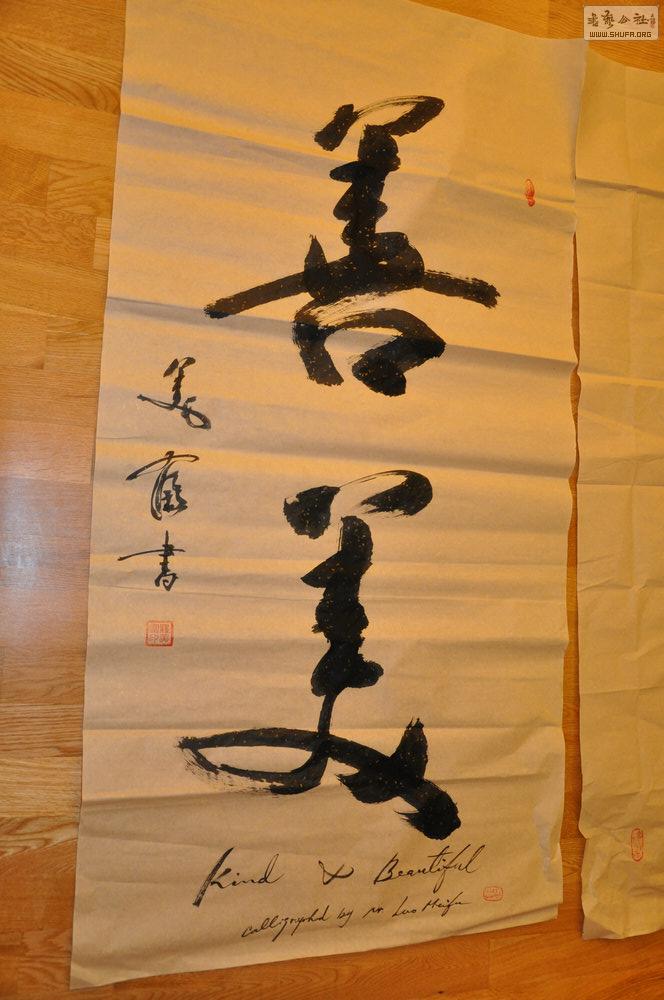 書藝公社
WWW.SHUFA.ORG
善
美
美
書
Kind & Beautiful
calligraphd by Mr Luo Meifu